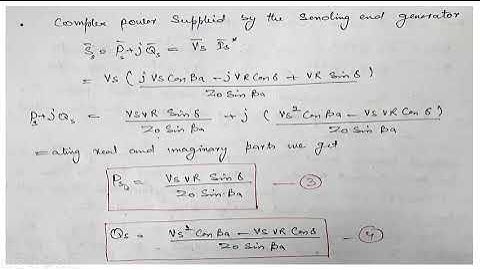 • Complex power Supplied by the Sending end generator
S̄s = P̄s + jQ̄s = V̄s Īs*
= Vs ( (j VS Cos Ba - j VR Cos δ + VR Sin δ) / (Zo Sin Ba) )
Ps + jQs = (VS VR Sin δ) / (Zo Sin Ba) + j ( (Vs² Cos Ba - VS VR Cos δ) / (Zo Sin Ba) )
=ating real and imaginary parts we get
Ps = (VS VR Sin δ) / (Zo Sin Ba) — ③
Qs = (Vs² Cos Ba - VS VR Cos δ) / (Zo Sin Ba) — ④